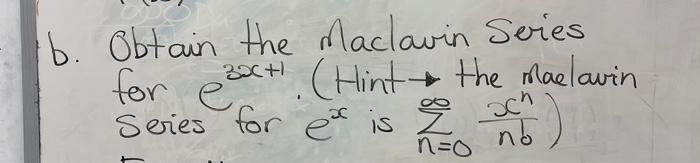 b. Obtain the Maclavin Series
for e^{3x+1}. (Hint → the Maelavin
Series for e^x is ∑_{n=0}^{∞} x^n/n!)